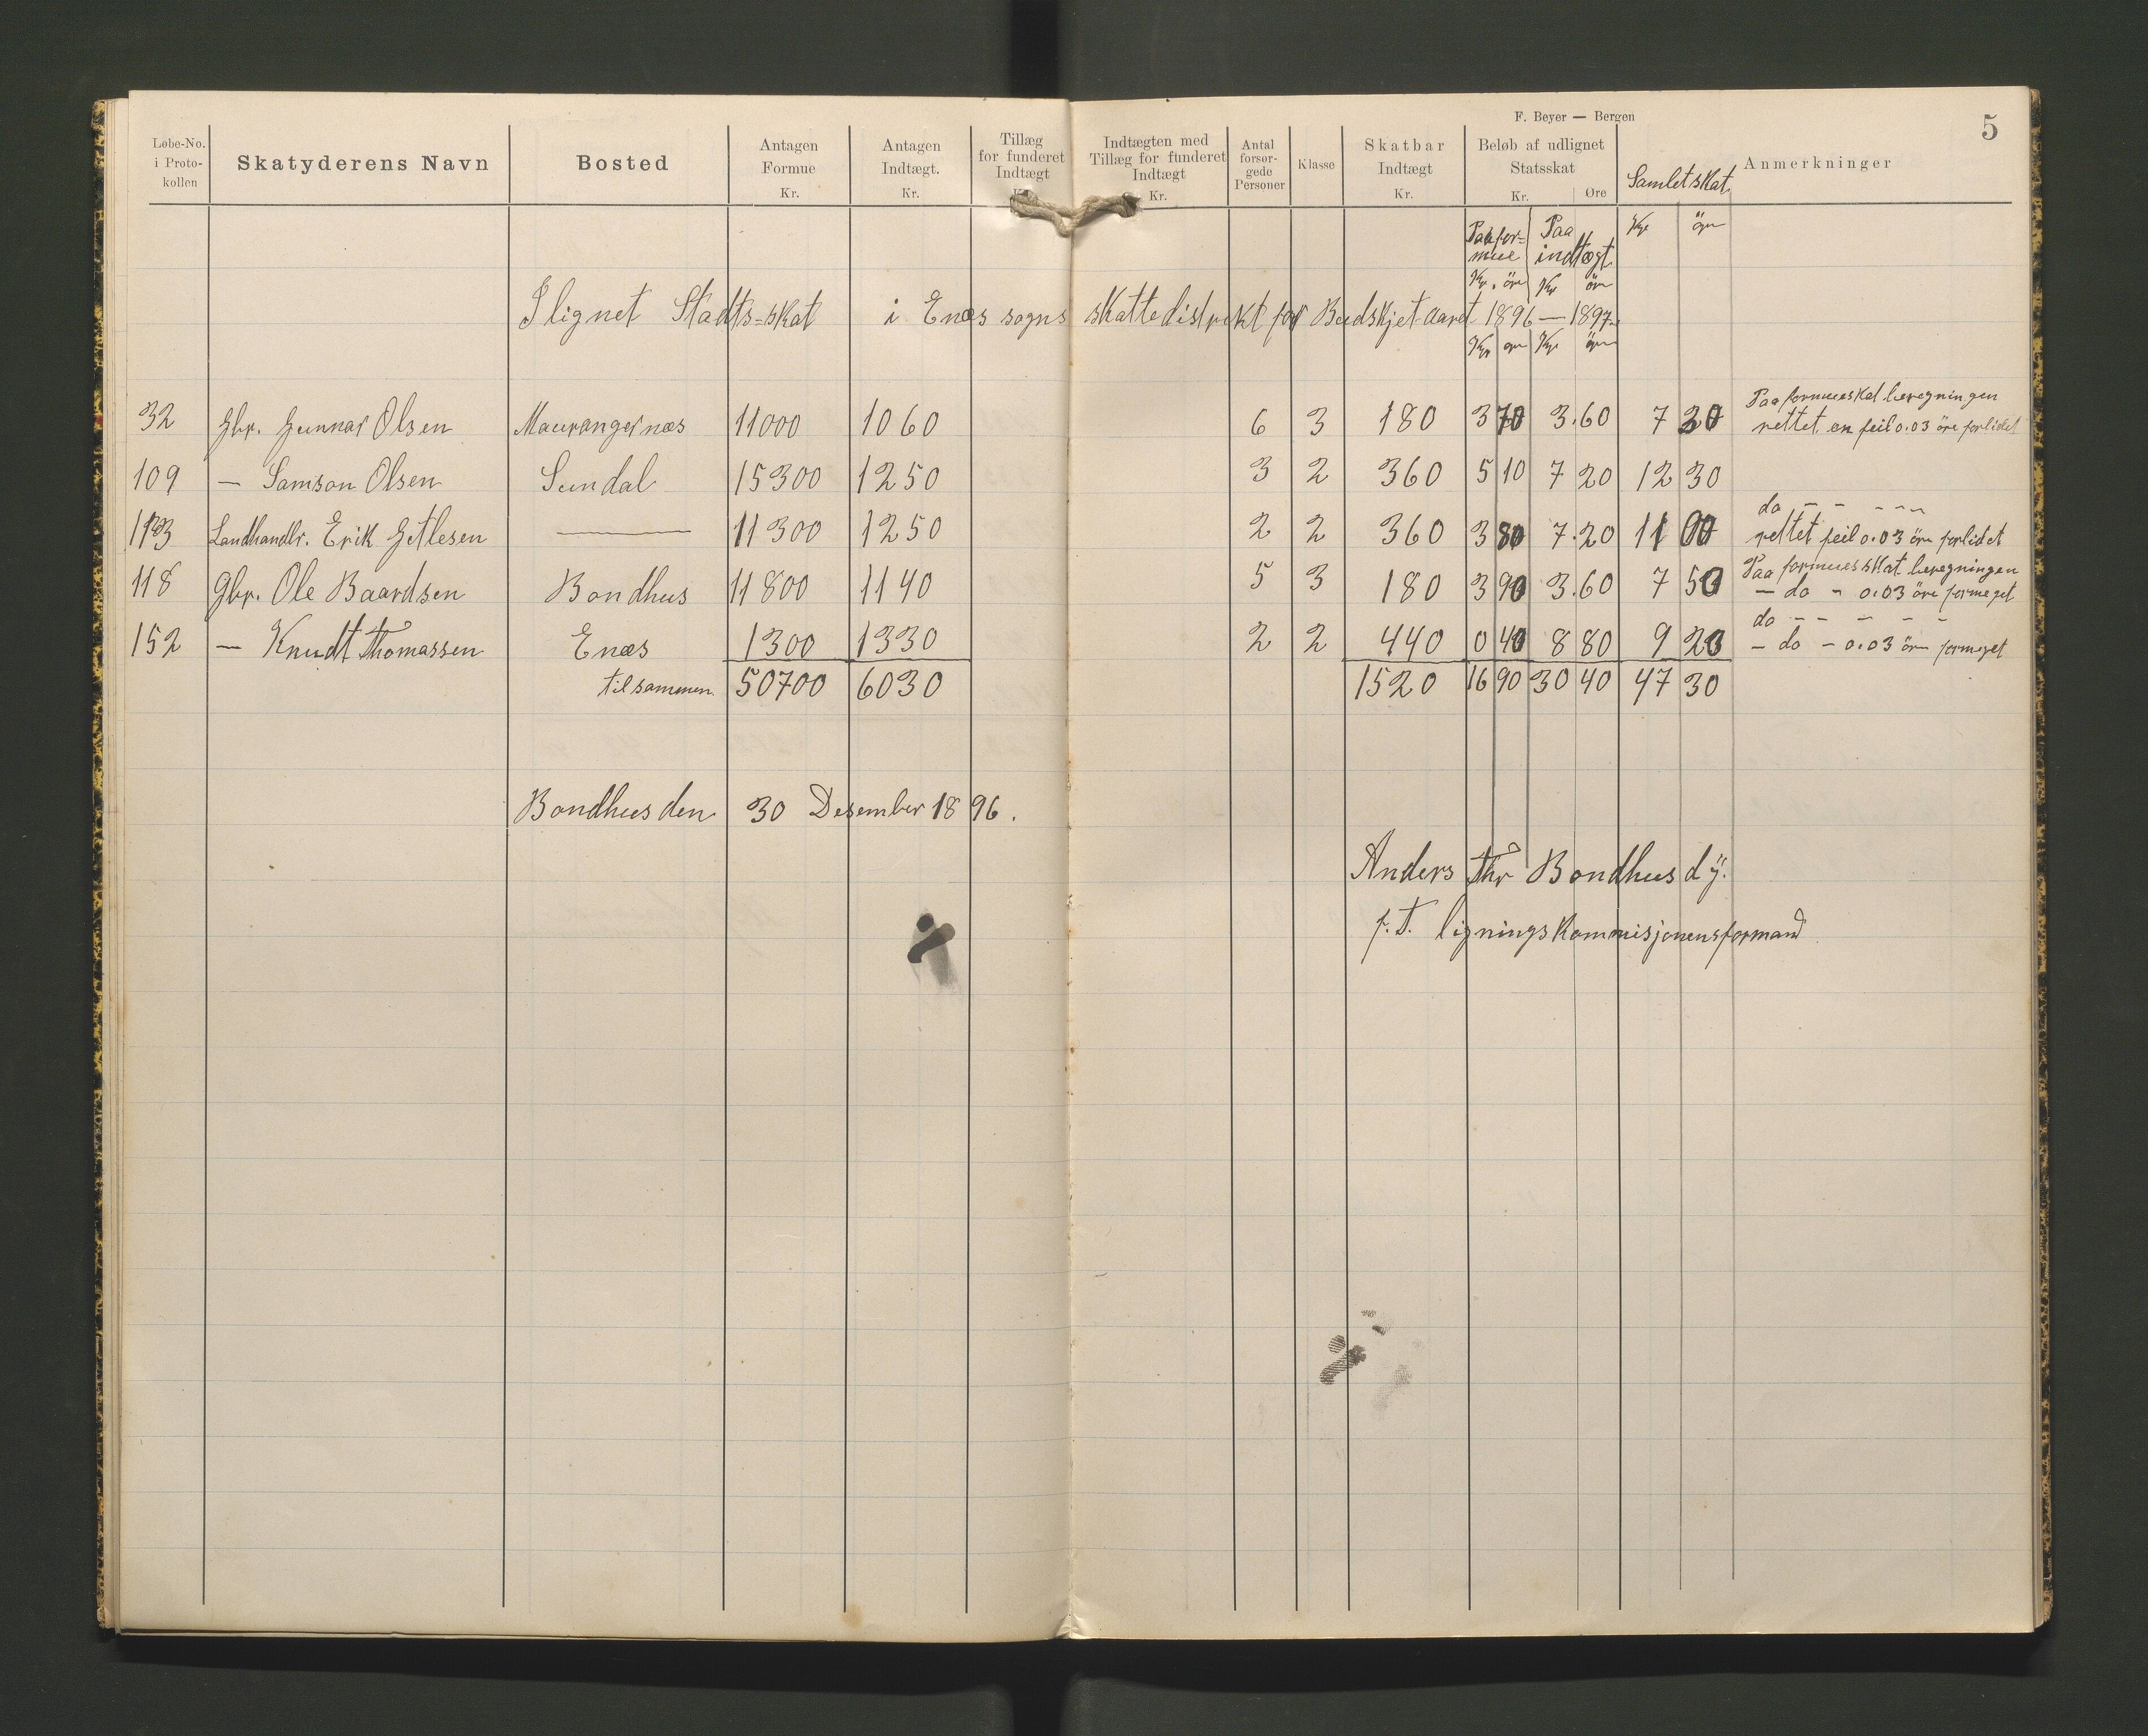 F. Beyer — Bergen
5
Løbe-No. i Proto-kollen | Skatyderens Navn | Bosted | Antagen Formue Kr. | Antagen Indtægt. Kr. | Tillæg for funderet Indtægt | Indtægten med Tillæg for funderet Indtægt Kr. | Antal forsør-gede Personer | Klasse | Skatbar Indtægt Kr. | Beløb af udlignet Statsskat Kr. Øre | Samlet skat | Anmerkninger
Paa for=mue Kr. öre | Paa indtægt Kr öre | Kr öre
Ilignet Stadts=skat i Enæs sogns skattedistrekt for Budskjetaaret 1896 — 1897.
Kr öre Kr öre
Paa formueskat beregningen
32 Gbr. Gunnar Olsen Maurangernæs 11000 1060 6 3 180 3 70 3.60 7 30 rettet en feil 0.03 öre forlidet
109 — Samson Olsen Sundal 15300 1250 3 2 360 5 10 7 20 12 30
do - - - - -
113 Landhandlr. Erik Getlesen — 11300 1250 2 2 360 3 80 7.20 11 00 rettet feil 0.03 öre forlidet
Paa formuesskat beregningen
118 Gbr. Ole Baardsen Bondhus 11800 1140 5 3 180 3 90 3.60 7 50 - do - 0.03 öre formeget
do - - - - -
152 — Knudt Thomassen Enæs 1300 1330 2 2 440 0 40 8 80 9 20 - do - 0.03 öre formeget
tilsammen 50700 6030 1520 16 90 30 40 47 30
Bondhus den 30 Desember 1896.
Anders Thr Bondhus d ÿ.
f. T. ligningskommisjonensformand